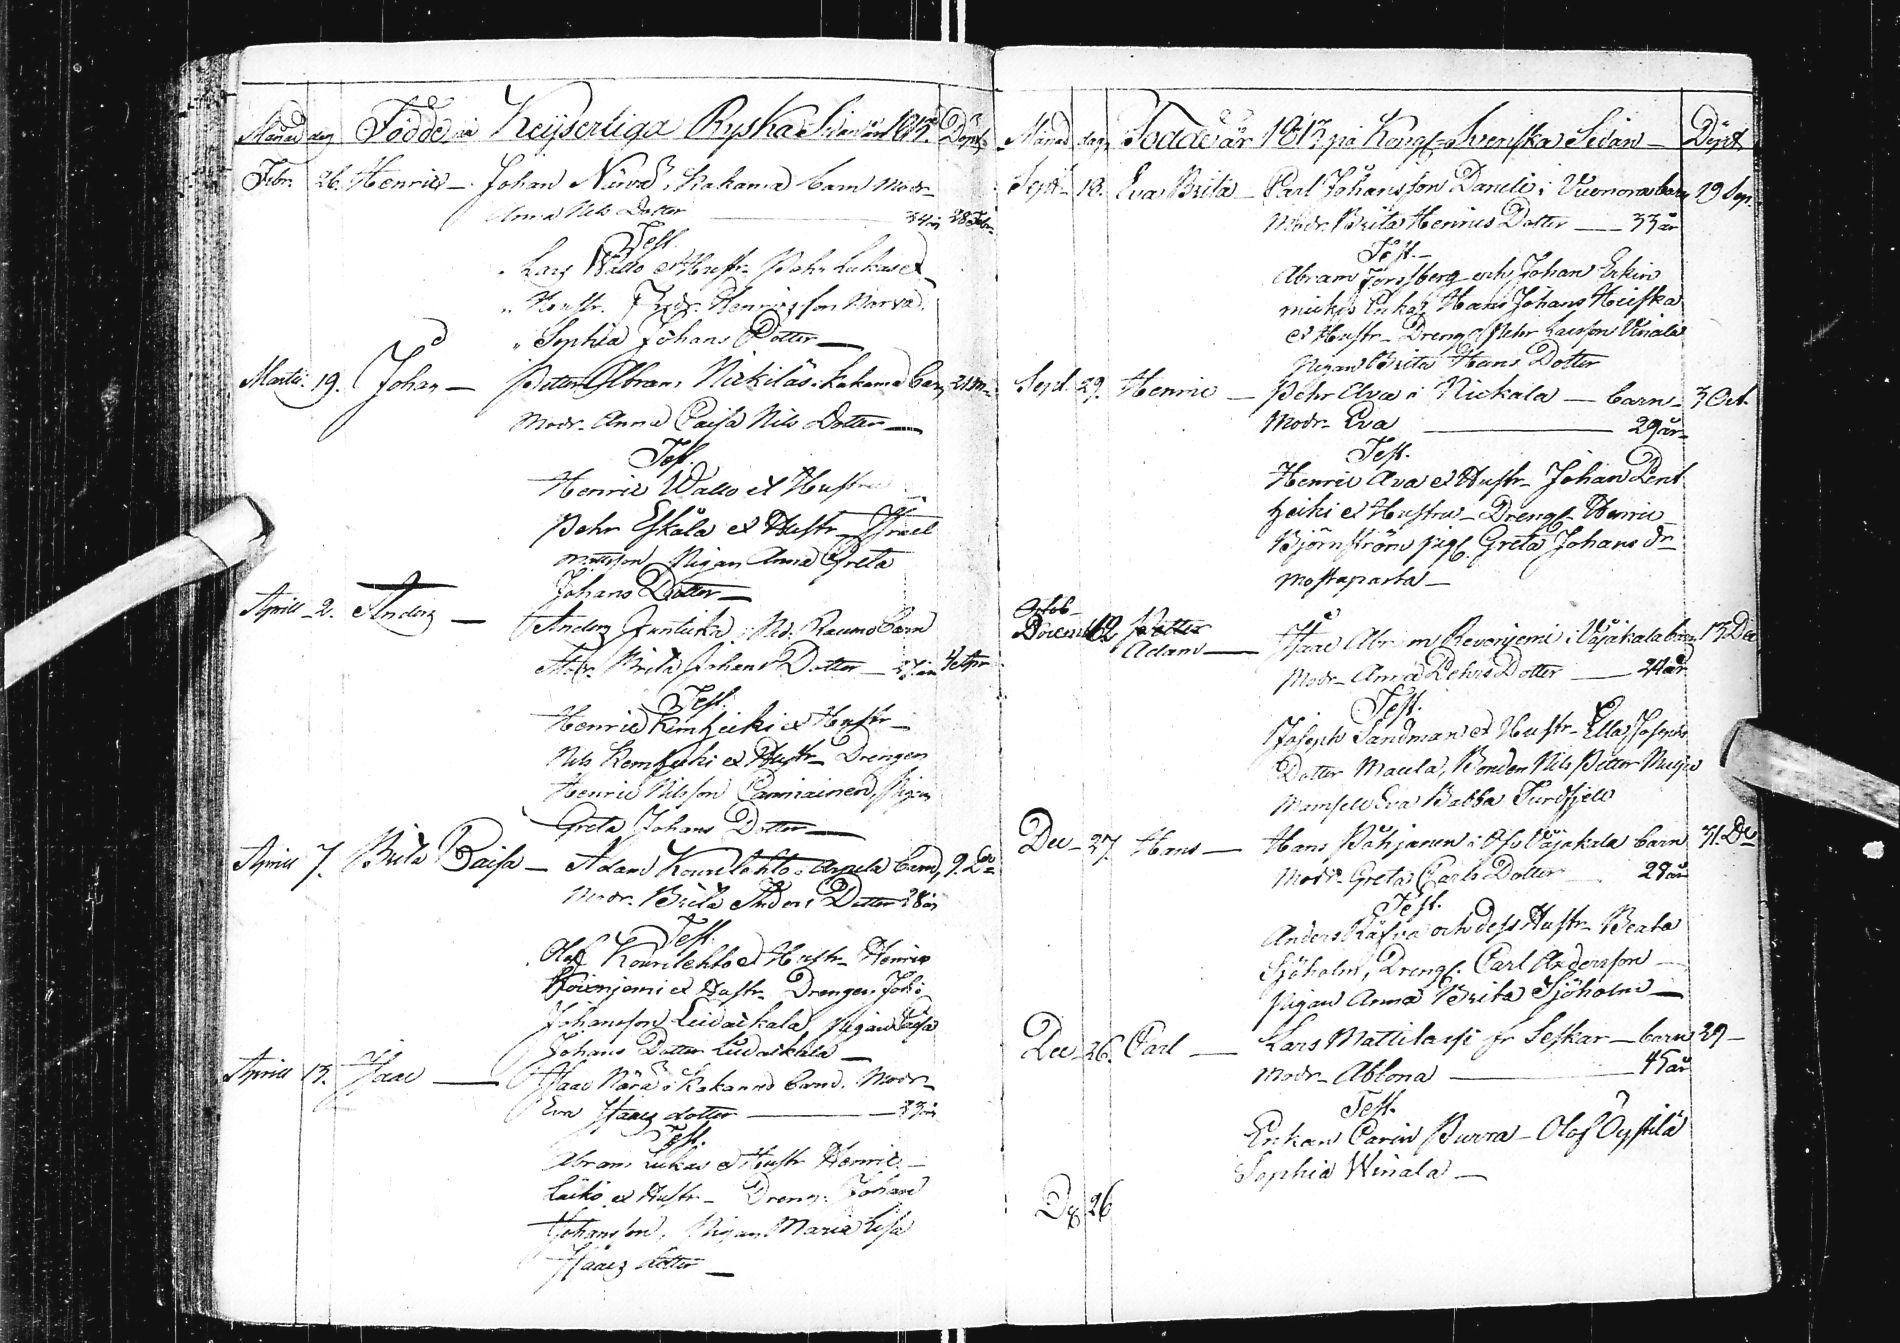 Månad dag Födde på Keijserliga Ryska Sidan år 1813. Döpt.
Febr. 26. Henric — Johan Närvä i Kakama barn Modr
Anna Nils Dotter — 34 år 28 Febr.
Test.
Lars Wallo et Hustr. Pehr Lukas et
Hustr. Fredr. Henricsson Narva
Sophia Johans Dotter —
Martii 19. Johan — Petter Abram Nickiläs Kakama barn 21 M.
Modr. Anna Caisa Nils Dotter —
Test.
Henric Wallo et Hustru
Pehr Eskäla et Hustr. Israel
Mattsson Pigan Anna Greta
Johans Dotter —
Aprill 2. Anders — Anders Juntikka i Ned. Raumo barn
Modr. Brita Johans Dotter — 27 år 4 Apr
Test.
Henric Kemiheiki et Hustr —
Nils Kemiheiki et Hustr — Drengen
Henric Nilsson Canniainen, Pigan
Greta Johans Dotter —
Aprill 7. Brita Caisa — Adam Kourilehto i Arpela barn, 9. D
Modr. Brita Anders Dotter 28 år
Test.
Olof Kourilehto et Hustr. Henric
et Hustr. Drengen Joh:
Johansson Liedackala, Pigan Caisa
Johans Dotter Liedackala —
Aprill 13. Isaac — Isaac Närä i Kakama barn. Modr
Eva Isaacs dotter — 33 år
Test.
Abram Lukas et Hustr Henric —
Laiko et Hustr — Dreng. Johan
Johansson, Pigan Maria Lisa
Isaacs dotter —
Månad dag. Födde år 1813 på Kongl. Svenska Sidan — Döpt.
Sept. 18. Eva Brita — Carl Johansson Daneli i Vuonora barn 19 Sep.
Modr. Brita Henrics Dotter — 33 år
Test. —
Abram Forssberg och Johan Erkin
Enka, Hans Johans Heiska
et Hustr — Dreng. Pehr Larsson Vinala
Pigan Brita Hans Dotter
Sept. 29. Henric — Pehr Ava i Nickala — barn — 3 Oct.
Modr. Eva — 29 år
Test.
Henric Ava et Hustr. Johan Pent
heiki et Hustru — Dreng. Henric
Björnström pig. Greta Johans Dr
Mostaparta —
Octob
Decemb 12 Petter
Adam — Isaac Abram Revonjemi i Vojakala barn 13 Dec
Modr. Anna Pehrs Dotter — 24 år
Test.
Joseph Sandman et Hustr. Ella Josephs
Dotter Maula, Bonden Nils Petter
Mamsell Eva Babba Turdfjell
Dec — 27. Hans — Hans Påhjanen i Öfv. Vojakala barn 31. De
Modr. Greta Carls Dotter — 28 år
Test.
Anders Räfva och dess Hustr. Beata
Sjöholm, Dreng. Carl Andersson —
Pigan Anna Brita Sjöholm —
Dec 26. Carl — Lars Mattilassi fr Seskar — barn 29 —
Modr. Ablona — 45 år
Test.
Enkan Carin Burra — Olof Öystilä
Sophia Winala —
D 26